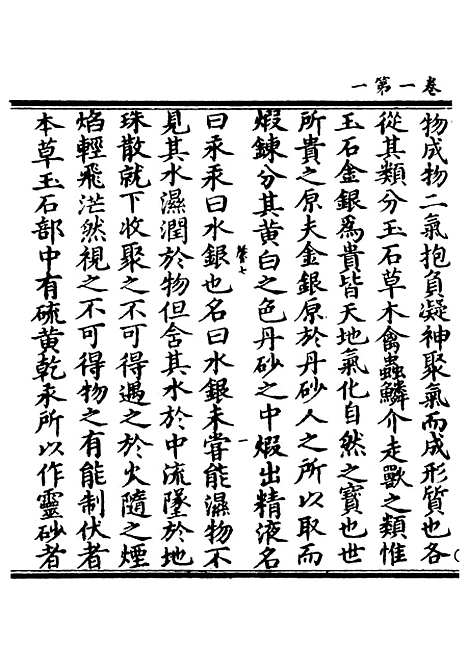 卷一第一
物成物二氣抱負凝神聚氣而成形質也各
從其類分玉石草木禽蟲鱗介走獸之類惟
玉石金銀爲貴皆天地氣化自然之寶也世
所貴之原夫金銀原於丹砂人之所以取而
煅鍊分其黃白之色丹砂之中煅出精液名
卷七 一
曰汞汞曰水銀也名曰水銀未嘗能濕物不
見其水濕潤於物但含其水於中流墜於地
珠散就下收聚之不可得遇之於火隨之煙
焰輕飛茫然視之不可得物之有能制伏者
本草玉石部中有硫黃乾汞所以作靈砂者